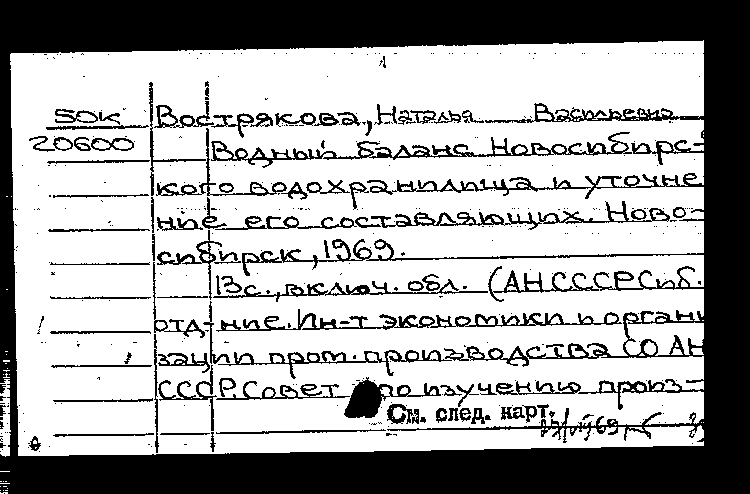 1
SOK Вострякова, Наталья Васильевна
20600 Водный баланс Новосибирс-
кого водохранилища и уточне
ние его составляющих. Ново-
сибирск, 1969.
13с., включ. обл. (АН СССР Сиб.
отд-ние. Ин-т экономики и органи
зации пром. производства СО АН
СССР. Совет по изучению произ-
См. след. карт.